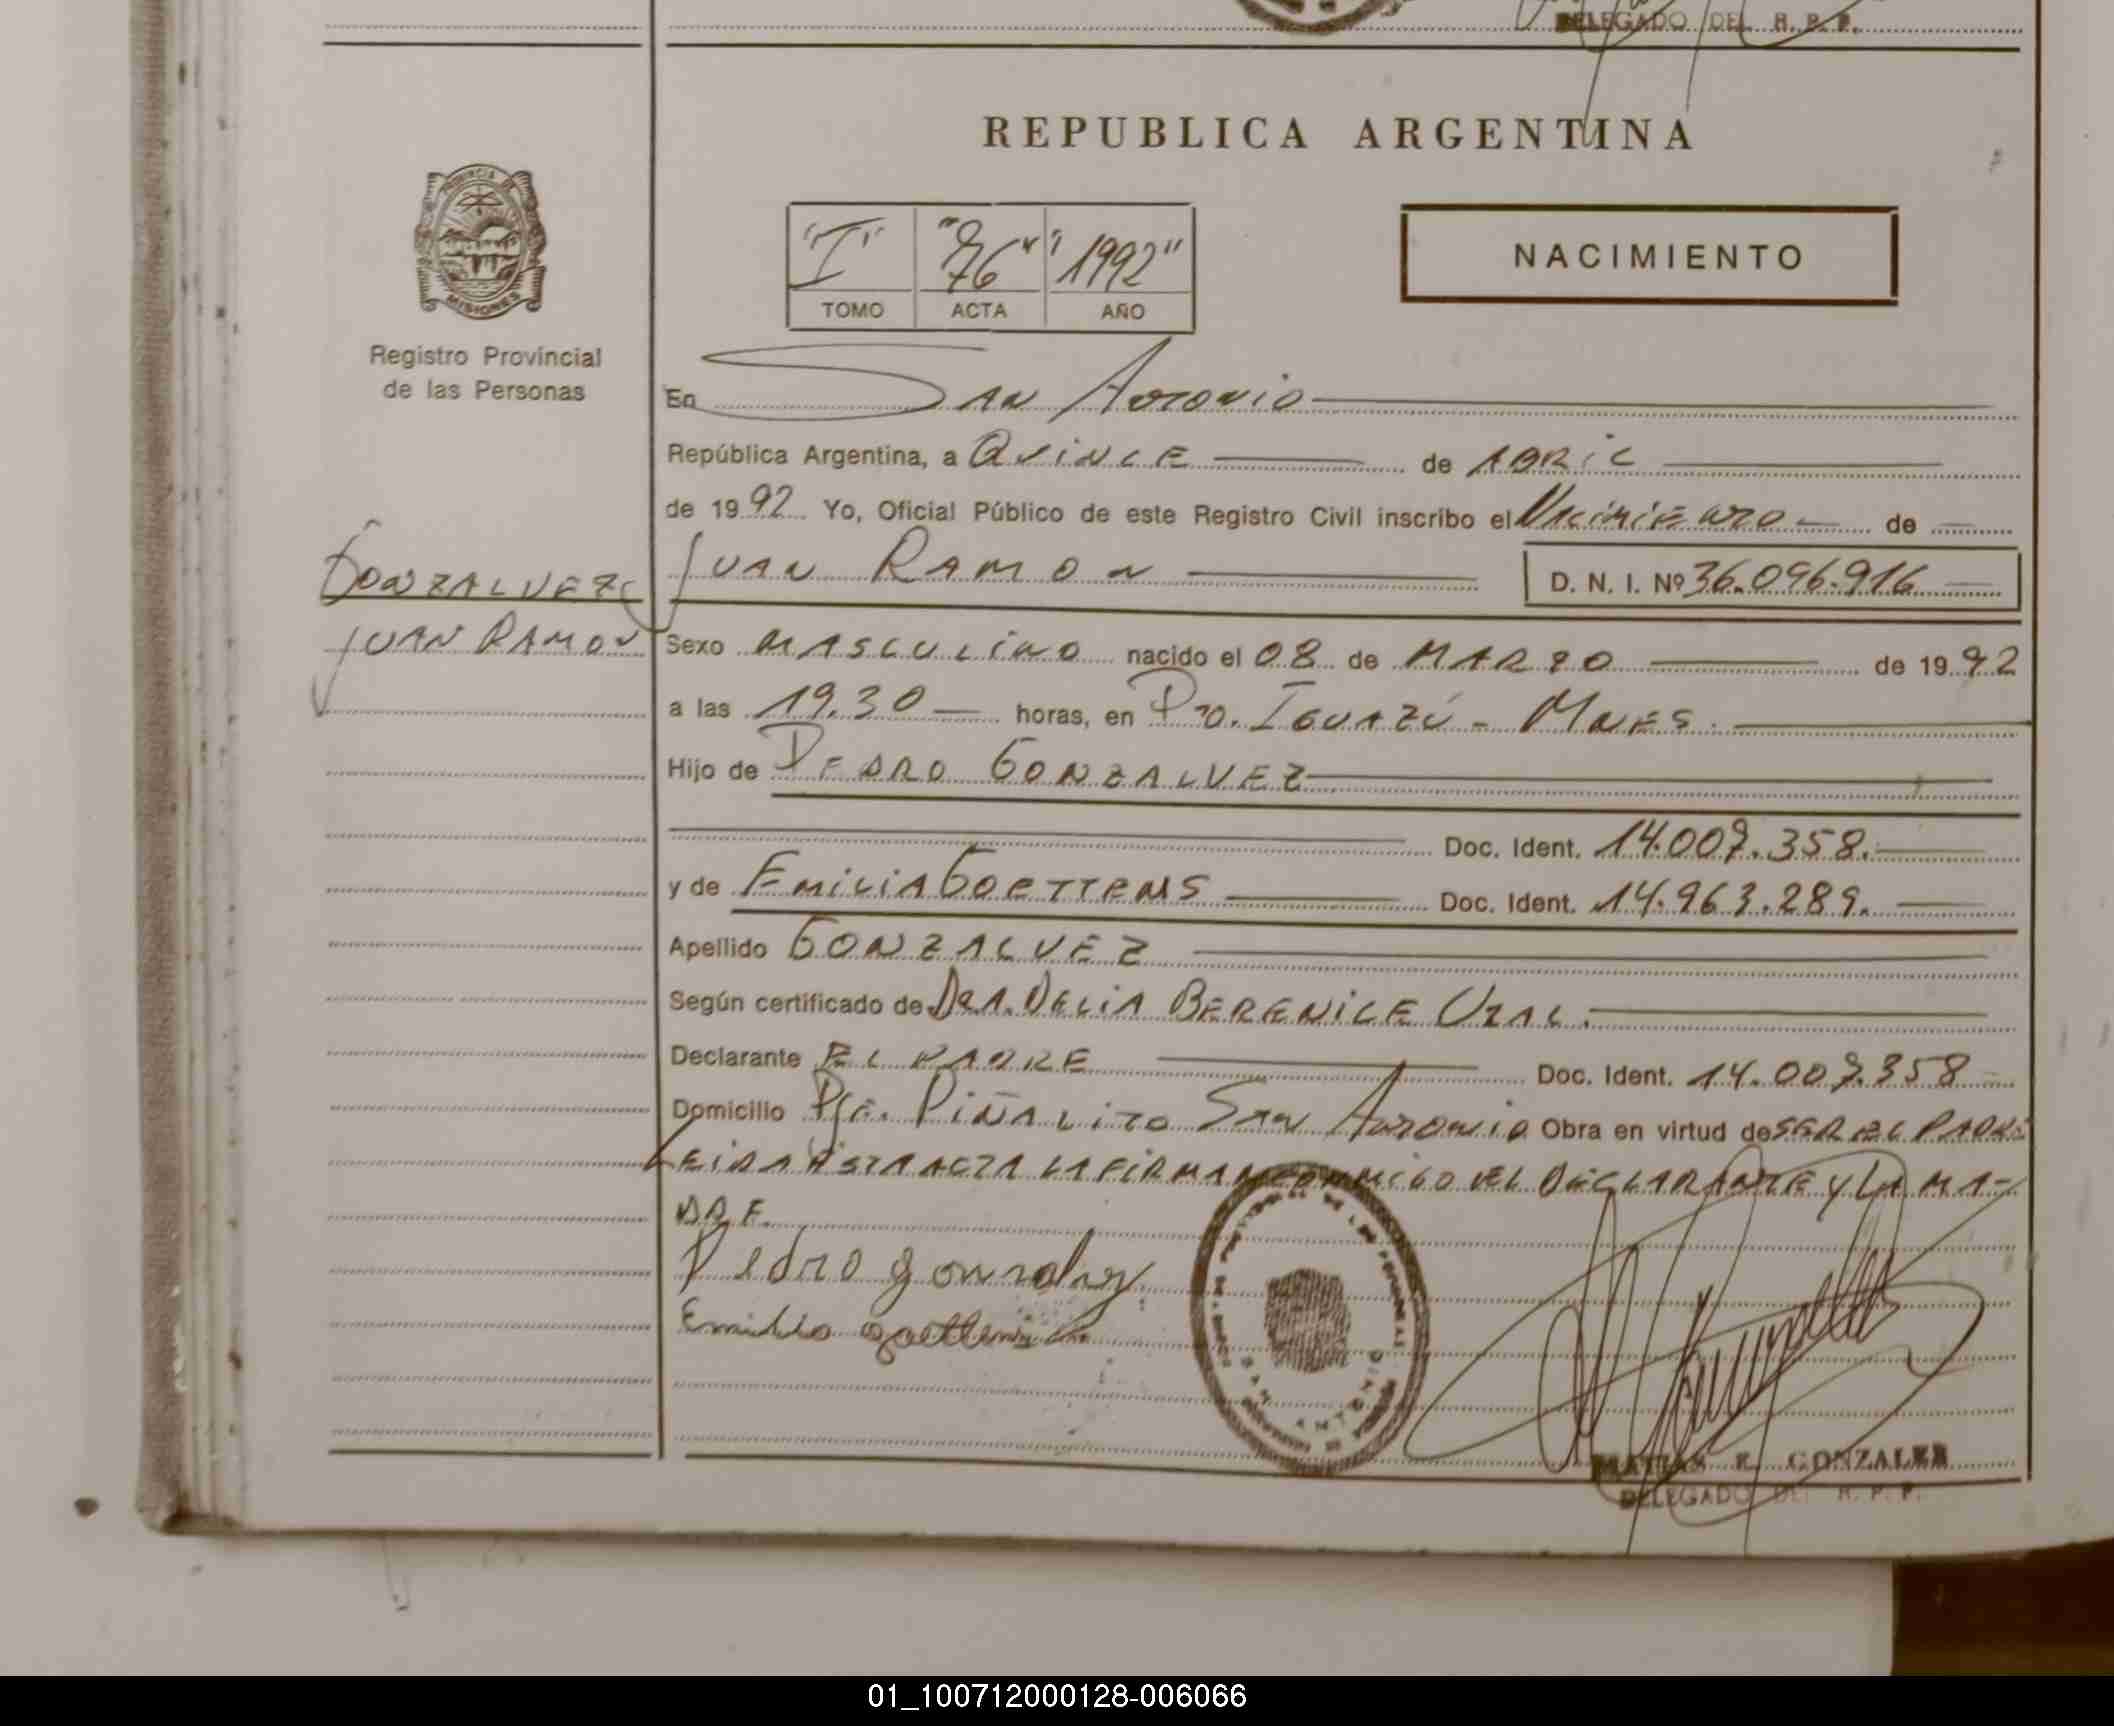 DELEGADO DEL R. P. P.
REPUBLICA ARGENTINA
PROVINCIA DE
MISIONES
Registro Provincial
de las Personas
"I" "76" "1992"
TOMO ACTA AÑO
NACIMIENTO
En San Antonio
República Argentina, a Quince de Abril
de 1992 Yo, Oficial Público de este Registro Civil inscribo el Nacimiento de
GONZALVEZ
JUAN RAMON
Juan Ramon D. N. I. Nº 36.096.916
Sexo masculino nacido el 08 de Marzo de 1992
a las 19.30 horas, en Pto. Iguazú - Mnes.
Hijo de Pedro Gonzalvez
Doc. Ident. 14.007.358.
y de Emilia Goettems Doc. Ident. 14.963.289.
Apellido Gonzalvez
Según certificado de Dra. Delia Berenice Uzal.
Declarante El padre Doc. Ident. 14.007.358
Domicilio Pje. Piñalito San Antonio Obra en virtud de ser el padre
Leida esta acta la firman conmigo el declarante y la ma-
dre.
Pedro gonzalvez
Emilia goettems
SAN ANTONIO
GONZALEZ
DELEGADO DEL R. P. P.
01_100712000128-006066